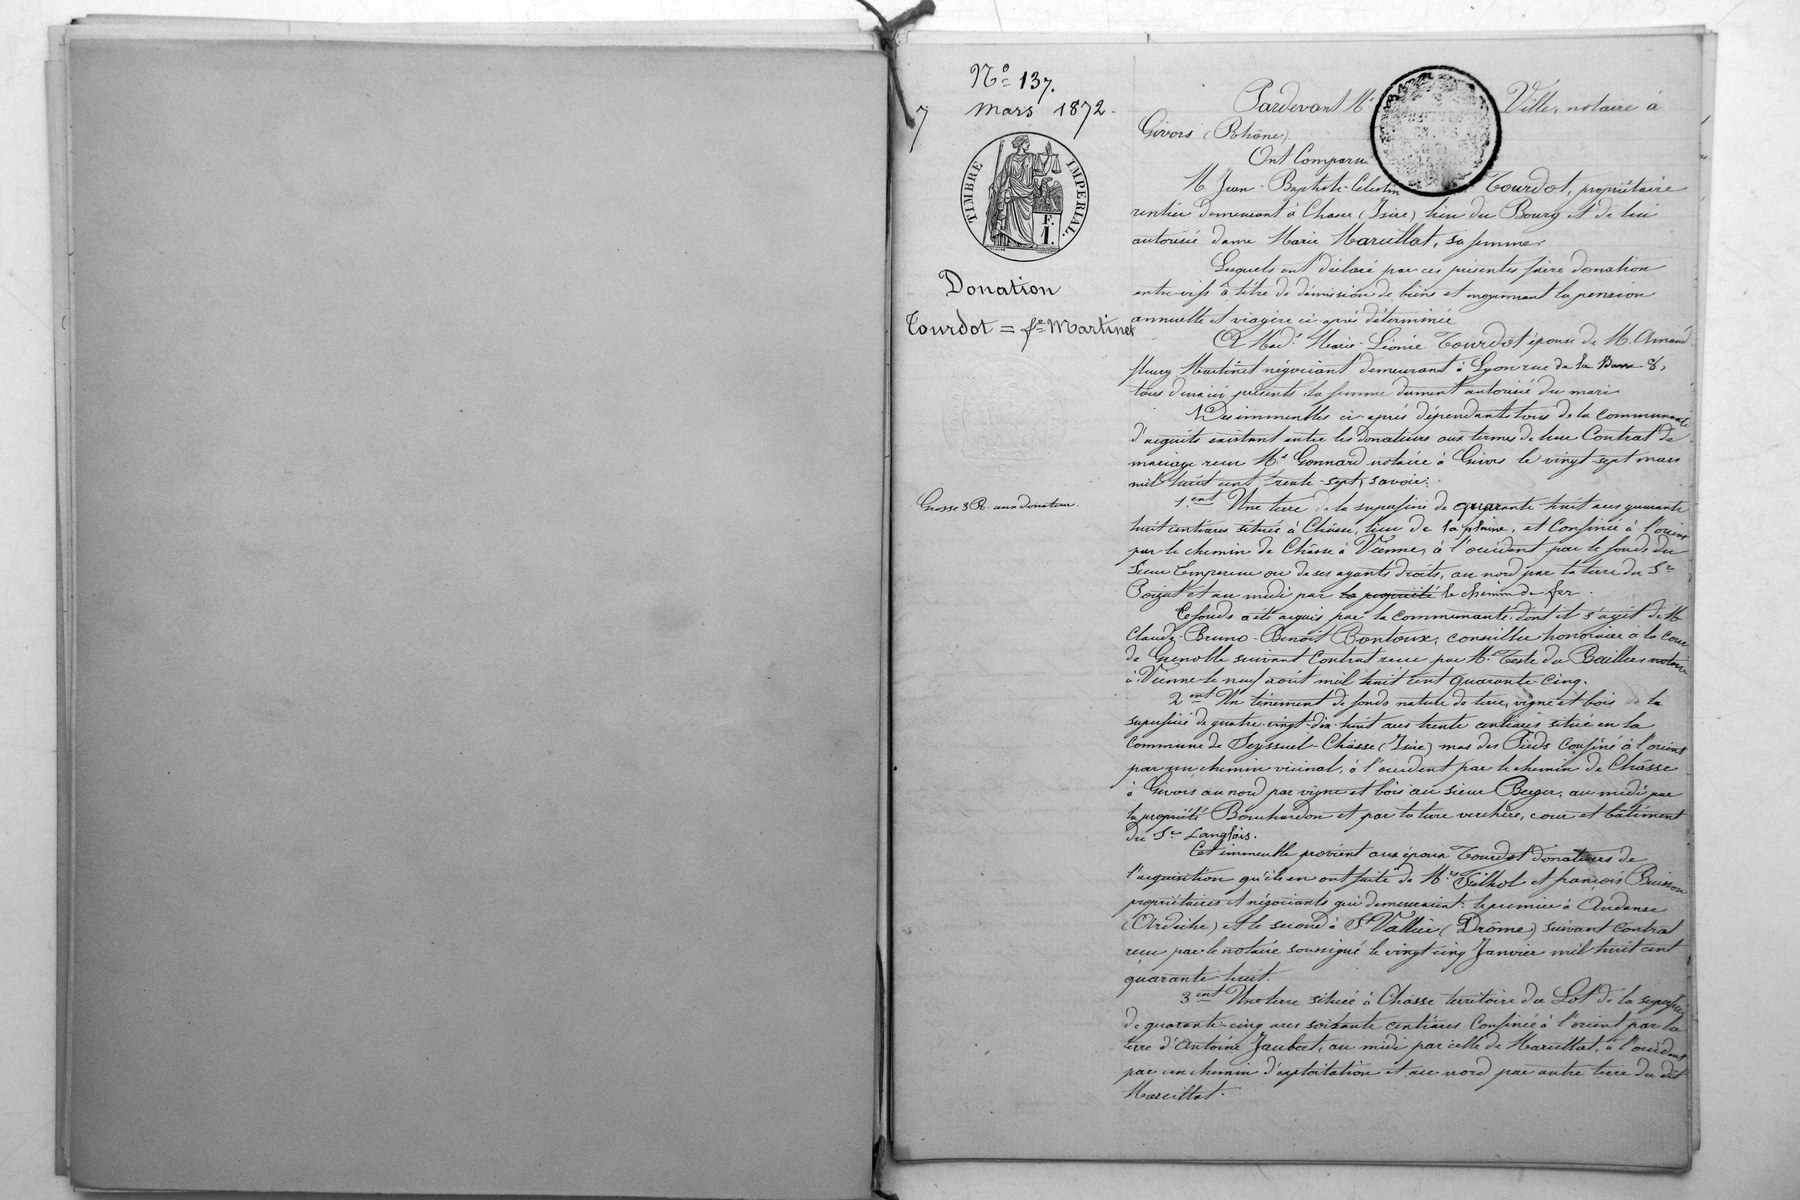 N° 137.
7 Mars 1872.
TIMBRE IMPERIAL.
F.
1.
Donation
Tourdot = fe Martinet
Grosse 3 R. aux donateurs.
Pardevant Me Ville, notaire à
Givors (Rhône)
Ont Comparu
M. Jean-Baptiste-Célestin Tourdot, propriétaire
rentier demeurant à Chasse (Isère) lieu du Bourg et de lui
autorisée dame Marie Marcillat, sa femme.
Lesquels ont déclaré par ces présentes faire donation
entre vifs à titre de démission de biens et moyennant la pension
annuelle et viagère ci-après déterminée
A Made Marie-Léonie Tourdot épouse de M. Amand
fleury Martinet négociant demeurant à Lyon rue de la Barre 8,
tous deux ici présents la femme dument autorisée du mari
Des immeubles ci-après dépendants tous de la communauté
d'acquets existant entre les donateurs aux termes de leur Contrat de
mariage reçu Me Gonnard notaire à Givors le vingt-sept mars
mil huit cent trente-sept, savoir:
1.ent Une terre de la superficie de quarante-huit ares quarante
huit centiares située à Châsse, lieu de la plaine, et Confinée à l'orient
par le chemin de Châsse à Vienne, à l'occident par le fonds du
Sieur Empereur ou de ses ayants droits, au nord par la terre du Sr
Poizat et au midi par la propriété le chemin de fer.
Ce fonds a été acquis par la communauté dont il s'agit de M.
Claude-Bruno-Benoît Bontoux, conseiller honoraire à la cour
de Grenoble suivant Contrat reçu par Me Teste du Bailler notaire
à Vienne le neuf août mil huit cent quarante-cinq.
2ent Un tènement de fonds nature de terre, vigne et bois de la
superficie de quatre-vingt-dix-huit ares trente centiares situé en la
Commune de Seyssuel-Châsse (Isère) mas des Pieds Confiné à l'orient
par un chemin vicinal, à l'occident par le chemin de Châsse
à Givors au nord par vigne et bois au sieur Berger, au midi par
la propriété Bouchardon et par la terre verchère, cour et bâtiment
du Sr Langlois.
Cet immeuble provient aux époux Tourdot donateurs de
l'acquisition qu'ils en ont faite de Mrs Filhol et françois Buisson
propriétaires et négociants qui demeuraient: le premier à Andance
(Ardèche) et le second à St Vallier (Drôme) suivant contrat
reçu par le notaire soussigné le vingt cinq Janvier mil huit cent
quarante-huit.
3ent Une terre située à Châsse territoire du Lot de la superficie
de quarante-cinq ares soixante centiares Confinée à l'orient par la
terre d'Antoine Jaubert, au midi par celle de Marcillat, à l'occident
par un chemin d'exploitation et au nord par autre terre du dit
Marcillat.